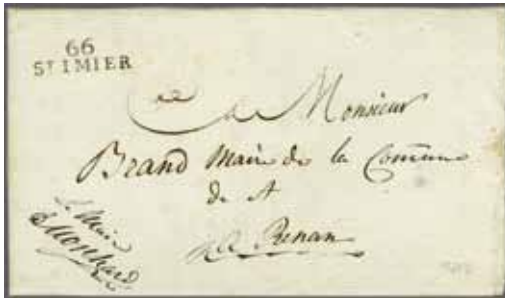 66
ST IMIER
A Monsieur
Brand Maire de la Comune
de
à Renan
Le Maire
Monthard